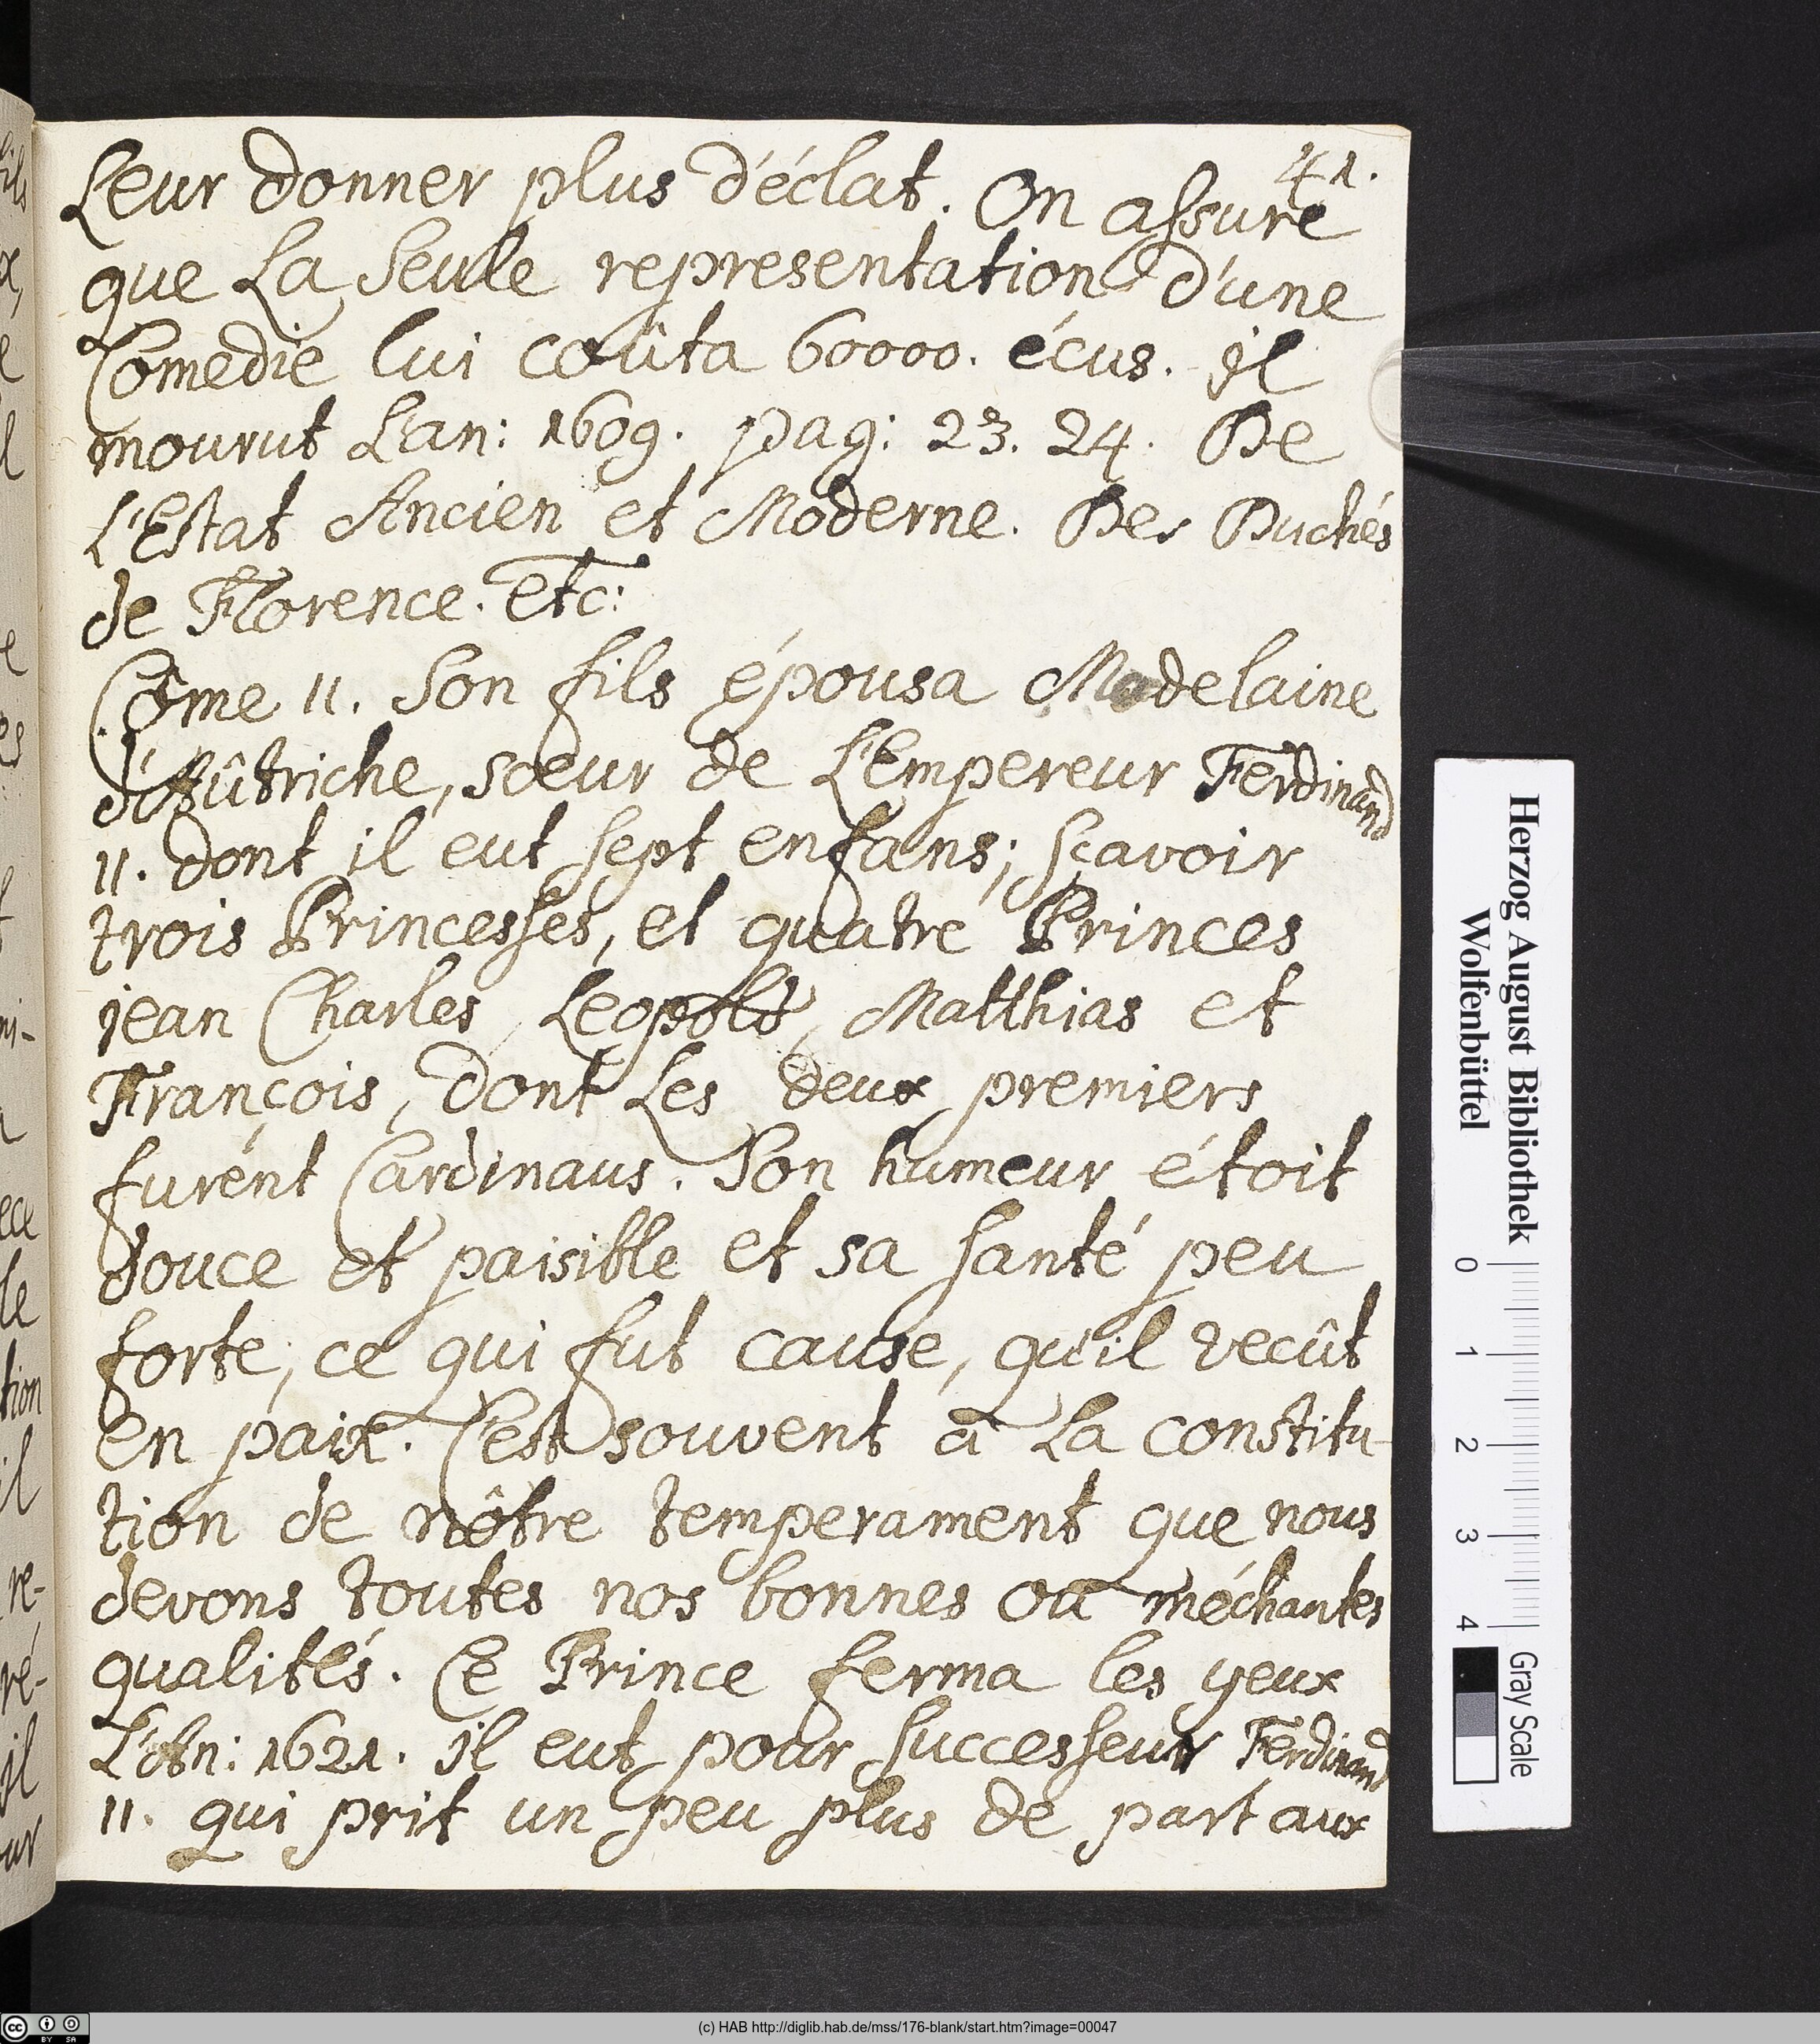 41.
Leur donner plus d'éclat. On assure
que La Seule representation d'une
Comedie lui coûta 60000. écus. il
mourut L'an: 1609. pag: 23. 24. De
L'Estat Ancien et Moderne. Des Duchés
de Florence. etc:
Côme II. Son fils épousa Madelaine
d'Aûtriche, soeur de L'Empereur Ferdinand
II. dont il eut sept enfans; sçavoir
trois Princesses, et quatre Princes
jean Charles, Leopold, Matthias et
François, dont Les deux premiers
furent Cardinaus. Son humeur étoit
douce et paisible et sa santé peu
forte, ce qui fut cause, qu'il vecût
en paix. C'est souvent à La constitu-
tion de nôtre temperament que nous
devons toutes nos bonnes ou méchantes
qualités. Ce Prince ferma les yeux
L'An: 1621. il eut pour successeur Ferdinand
II. qui prit un peu plus de part aux
Herzog August Bibliothek
Wolfenbüttel
0 1 2 3 4
Gray Scale
(c) HAB http://diglib.hab.de/mss/176-blank/start.htm?image=00047